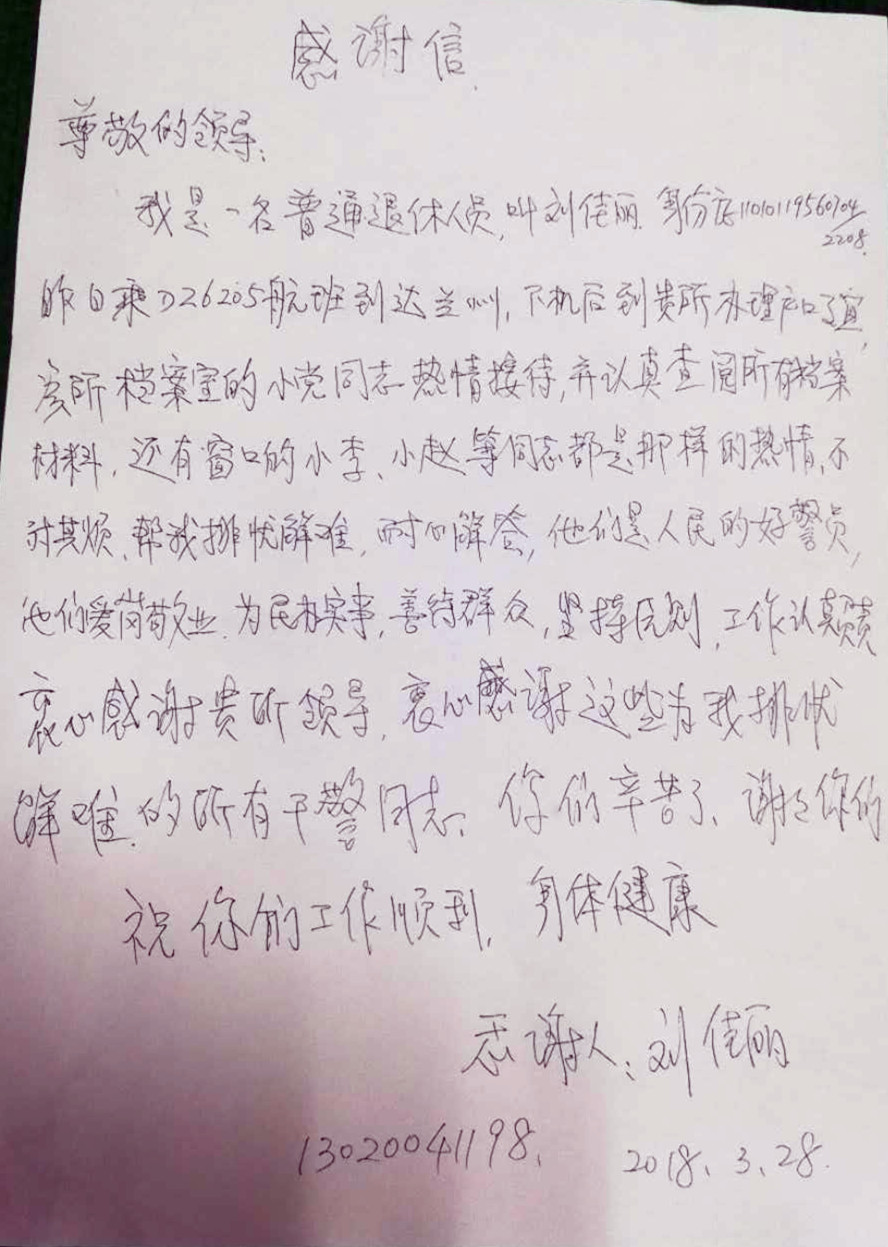 感谢信
尊敬的领导：
我是一名普通退休人员，叫刘佳丽。身份证11010119560704
2208.
昨日乘DZ6205航班到达兰州，下机后到贵所办理户口事宜，
贵所档案室的小党同志热情接待，并认真查阅所有档案
材料，还有窗口的小李、小赵等同志都是那样的热情，不
讨其烦，帮我排忧解难，耐心解答，他们是人民的好警员，
他们爱岗敬业，为民办实事，善待群众，坚持原则，工作认真负责
衷心感谢贵所领导，衷心感谢这些为我排忧
解难的所有干警同志、你们辛苦了、谢谢你们
祝你们工作顺利，身体健康
感谢人：刘佳丽
13020041198.
2018.3.28.